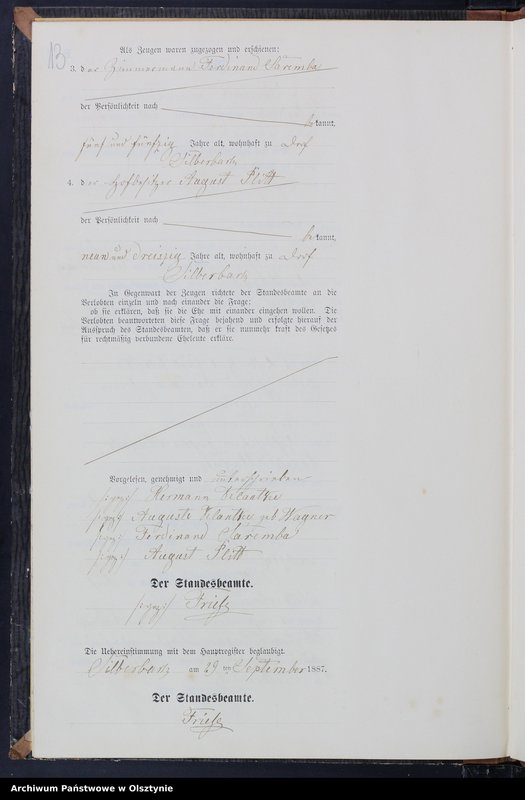 13
Als Zeugen waren zugezogen und erschienen:
3. der Zimmermann Ferdinand Saremba
der Persönlichkeit nach
bekannt,
fünf und fünfzig Jahre alt, wohnhaft zu Dorf
Silberbach
4. der Hofbesitzer August Plitt
der Persönlichkeit nach
bekannt,
neun und dreiszig Jahre alt, wohnhaft zu Dorf
Silberbach
In Gegenwart der Zeugen richtete der Standesbeamte an die
Verlobten einzeln und nach einander die Frage:
ob sie erklären, daß sie die Ehe mit einander eingehen wollen. Die
Verlobten beantworteten diese Frage bejahend und erfolgte hierauf der
Ausspruch des Standesbeamten, daß er sie nunmehr kraft des Gesetzes
für rechtmäßig verbundene Eheleute erkläre.
Vorgelesen, genehmigt und unterschrieben
Hermann
Auguste geb Wagner
Ferdinand Saremba
August Plitt
Der Standesbeamte.
Friese
Die Uebereinstimmung mit dem Hauptregister beglaubigt.
Silberbach am 29 ten September 1887.
Der Standesbeamte.
Friese
Archiwum Państwowe w Olsztynie